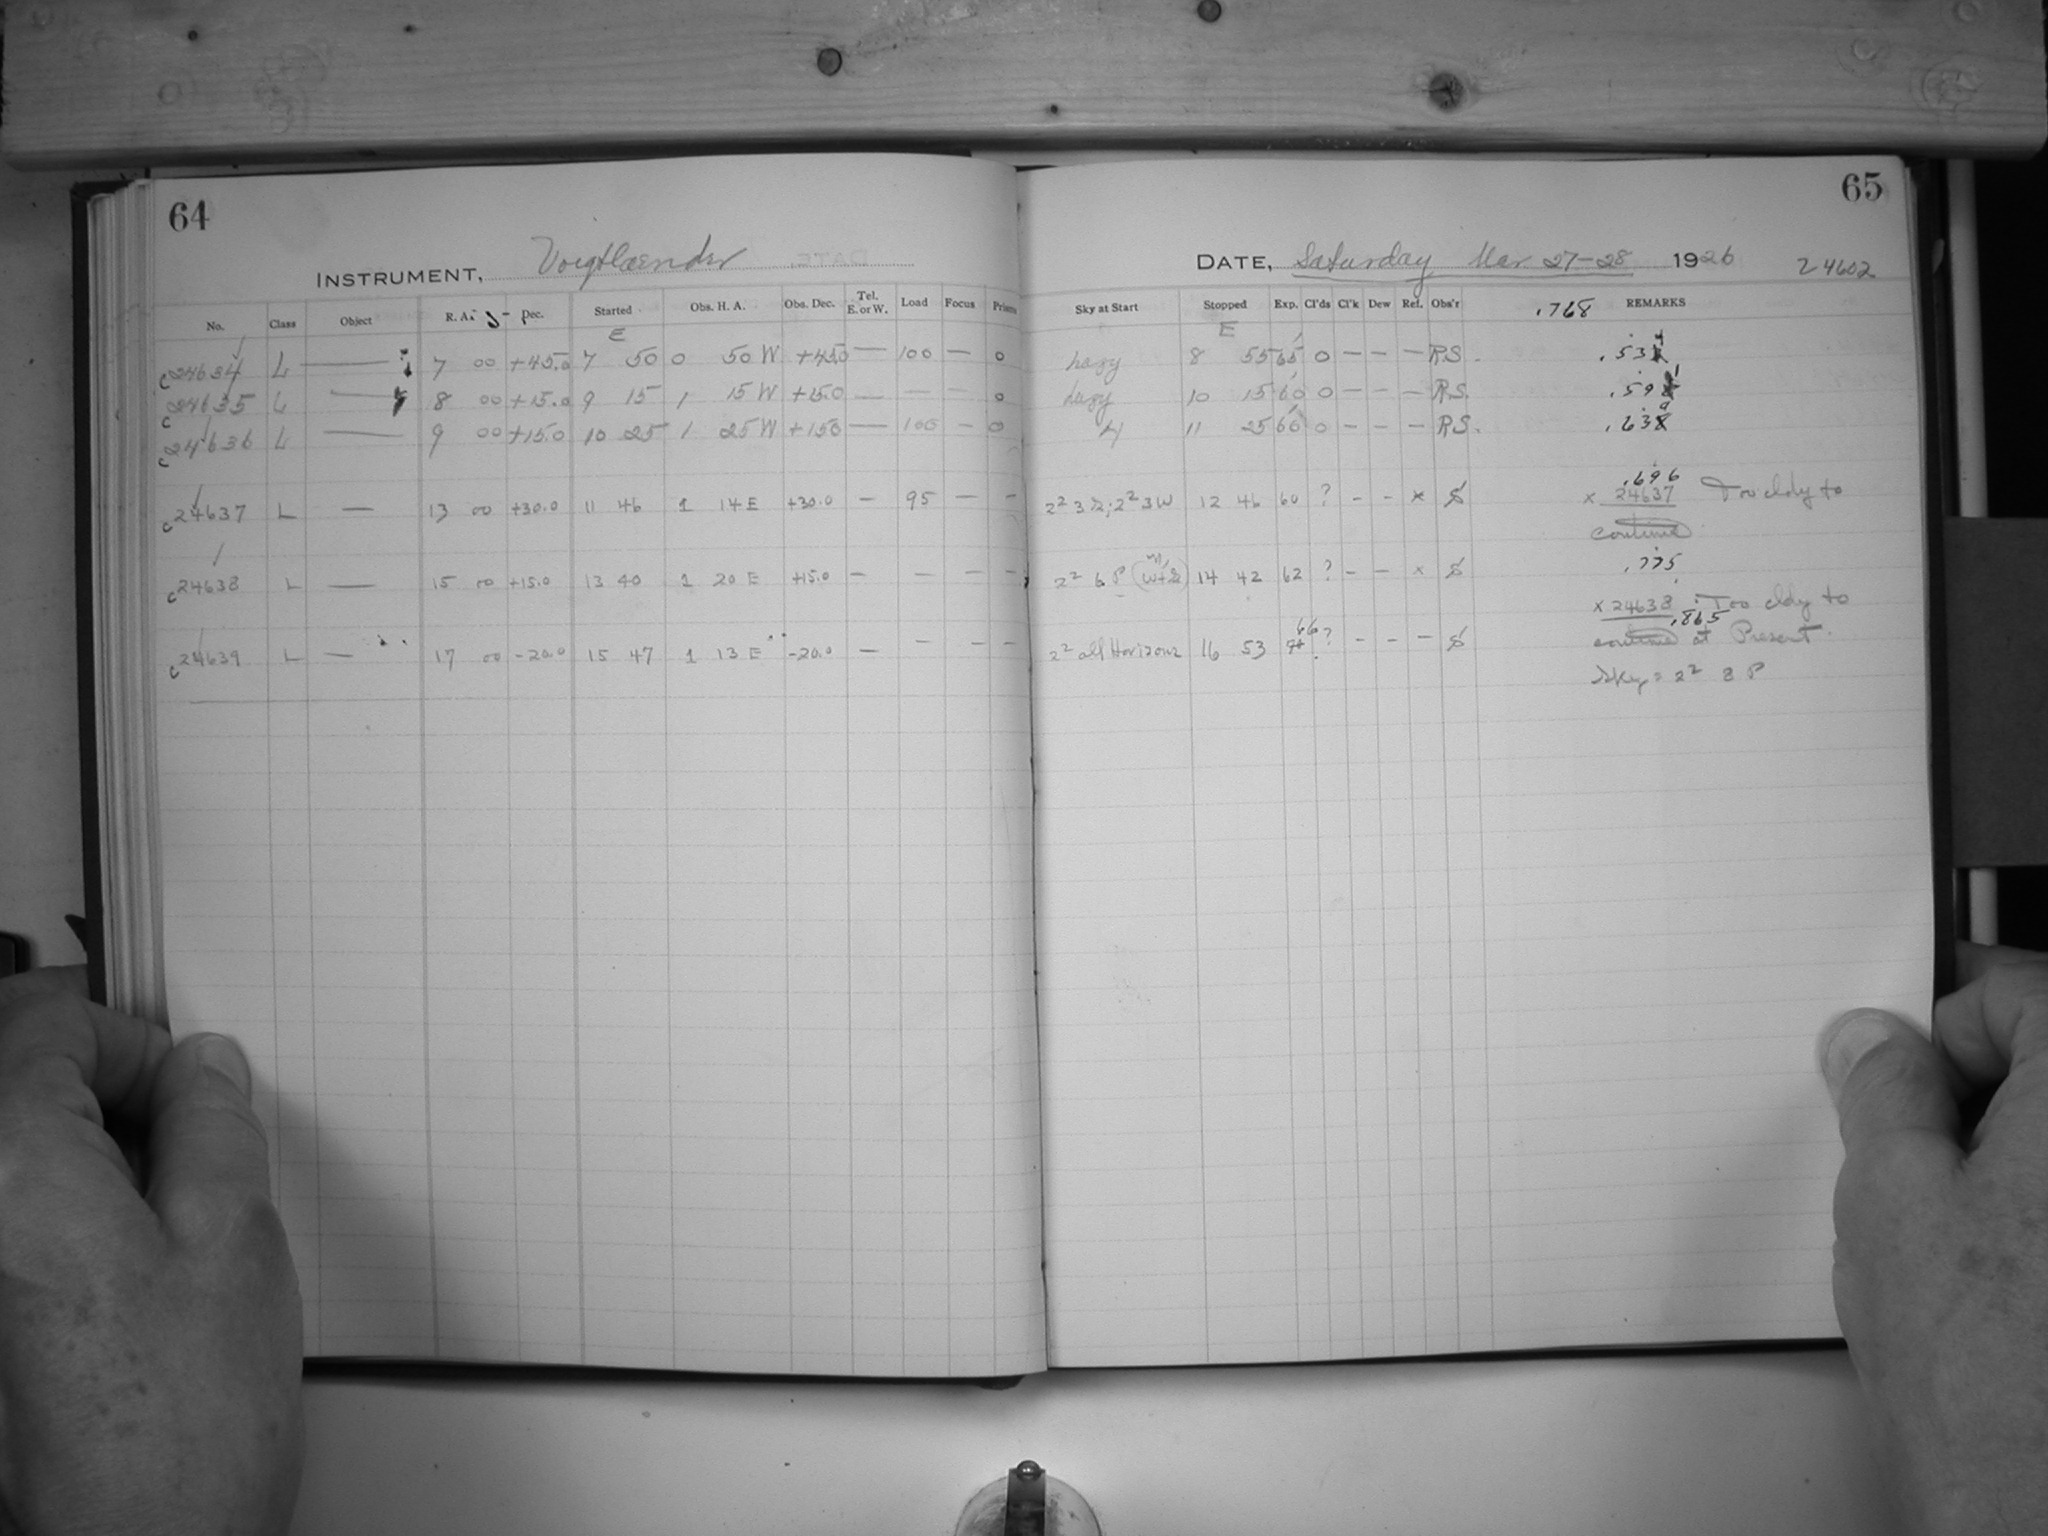 64
INSTRUMENT, Voigtlaender
No. Class Object R. A. Dec. Started Obs. H. A. Obs. Dec. Tel. E. or W. Load Focus Prisms
E
c24634 L — 7 00 +45.0 7 50 0 50 W +45.0 — 100 — 0
c24635 L — 8 00 +15.0 9 15 1 15 W +15.0 — — — 0
c24636 L — 9 00 +15.0 10 25 1 25 W +15.0 — 100 — 0
c24637 L — 13 00 +30.0 11 46 1 14 E +30.0 — 95 — —
c24638 L — 15 00 +15.0 13 40 1 20 E +15.0 — — — —
c24639 L — 17 00 -20.0 15 47 1 13 E -20.0 — — — —
65
DATE, Saturday Mar 27-28 1926 24602
Sky at Start Stopped Exp. Cl'ds Cl'k Dew Ref. Obs'r .768 REMARKS
E
hazy 8 55 65 0 — — — RS. .534
hazy 10 15 60 0 — — — RS. .591
4 11 25 60 0 — — — RS. .639
.696
12 46 60 ? - - x x 24637 Too cldy to
continue
2² 6 P 14 42 62 ? - - x .775
x 24638 : Too cldy to
.865
2² all Horizons 16 53 66 ? - - - continue at Present.
Sky = 2² 8 P